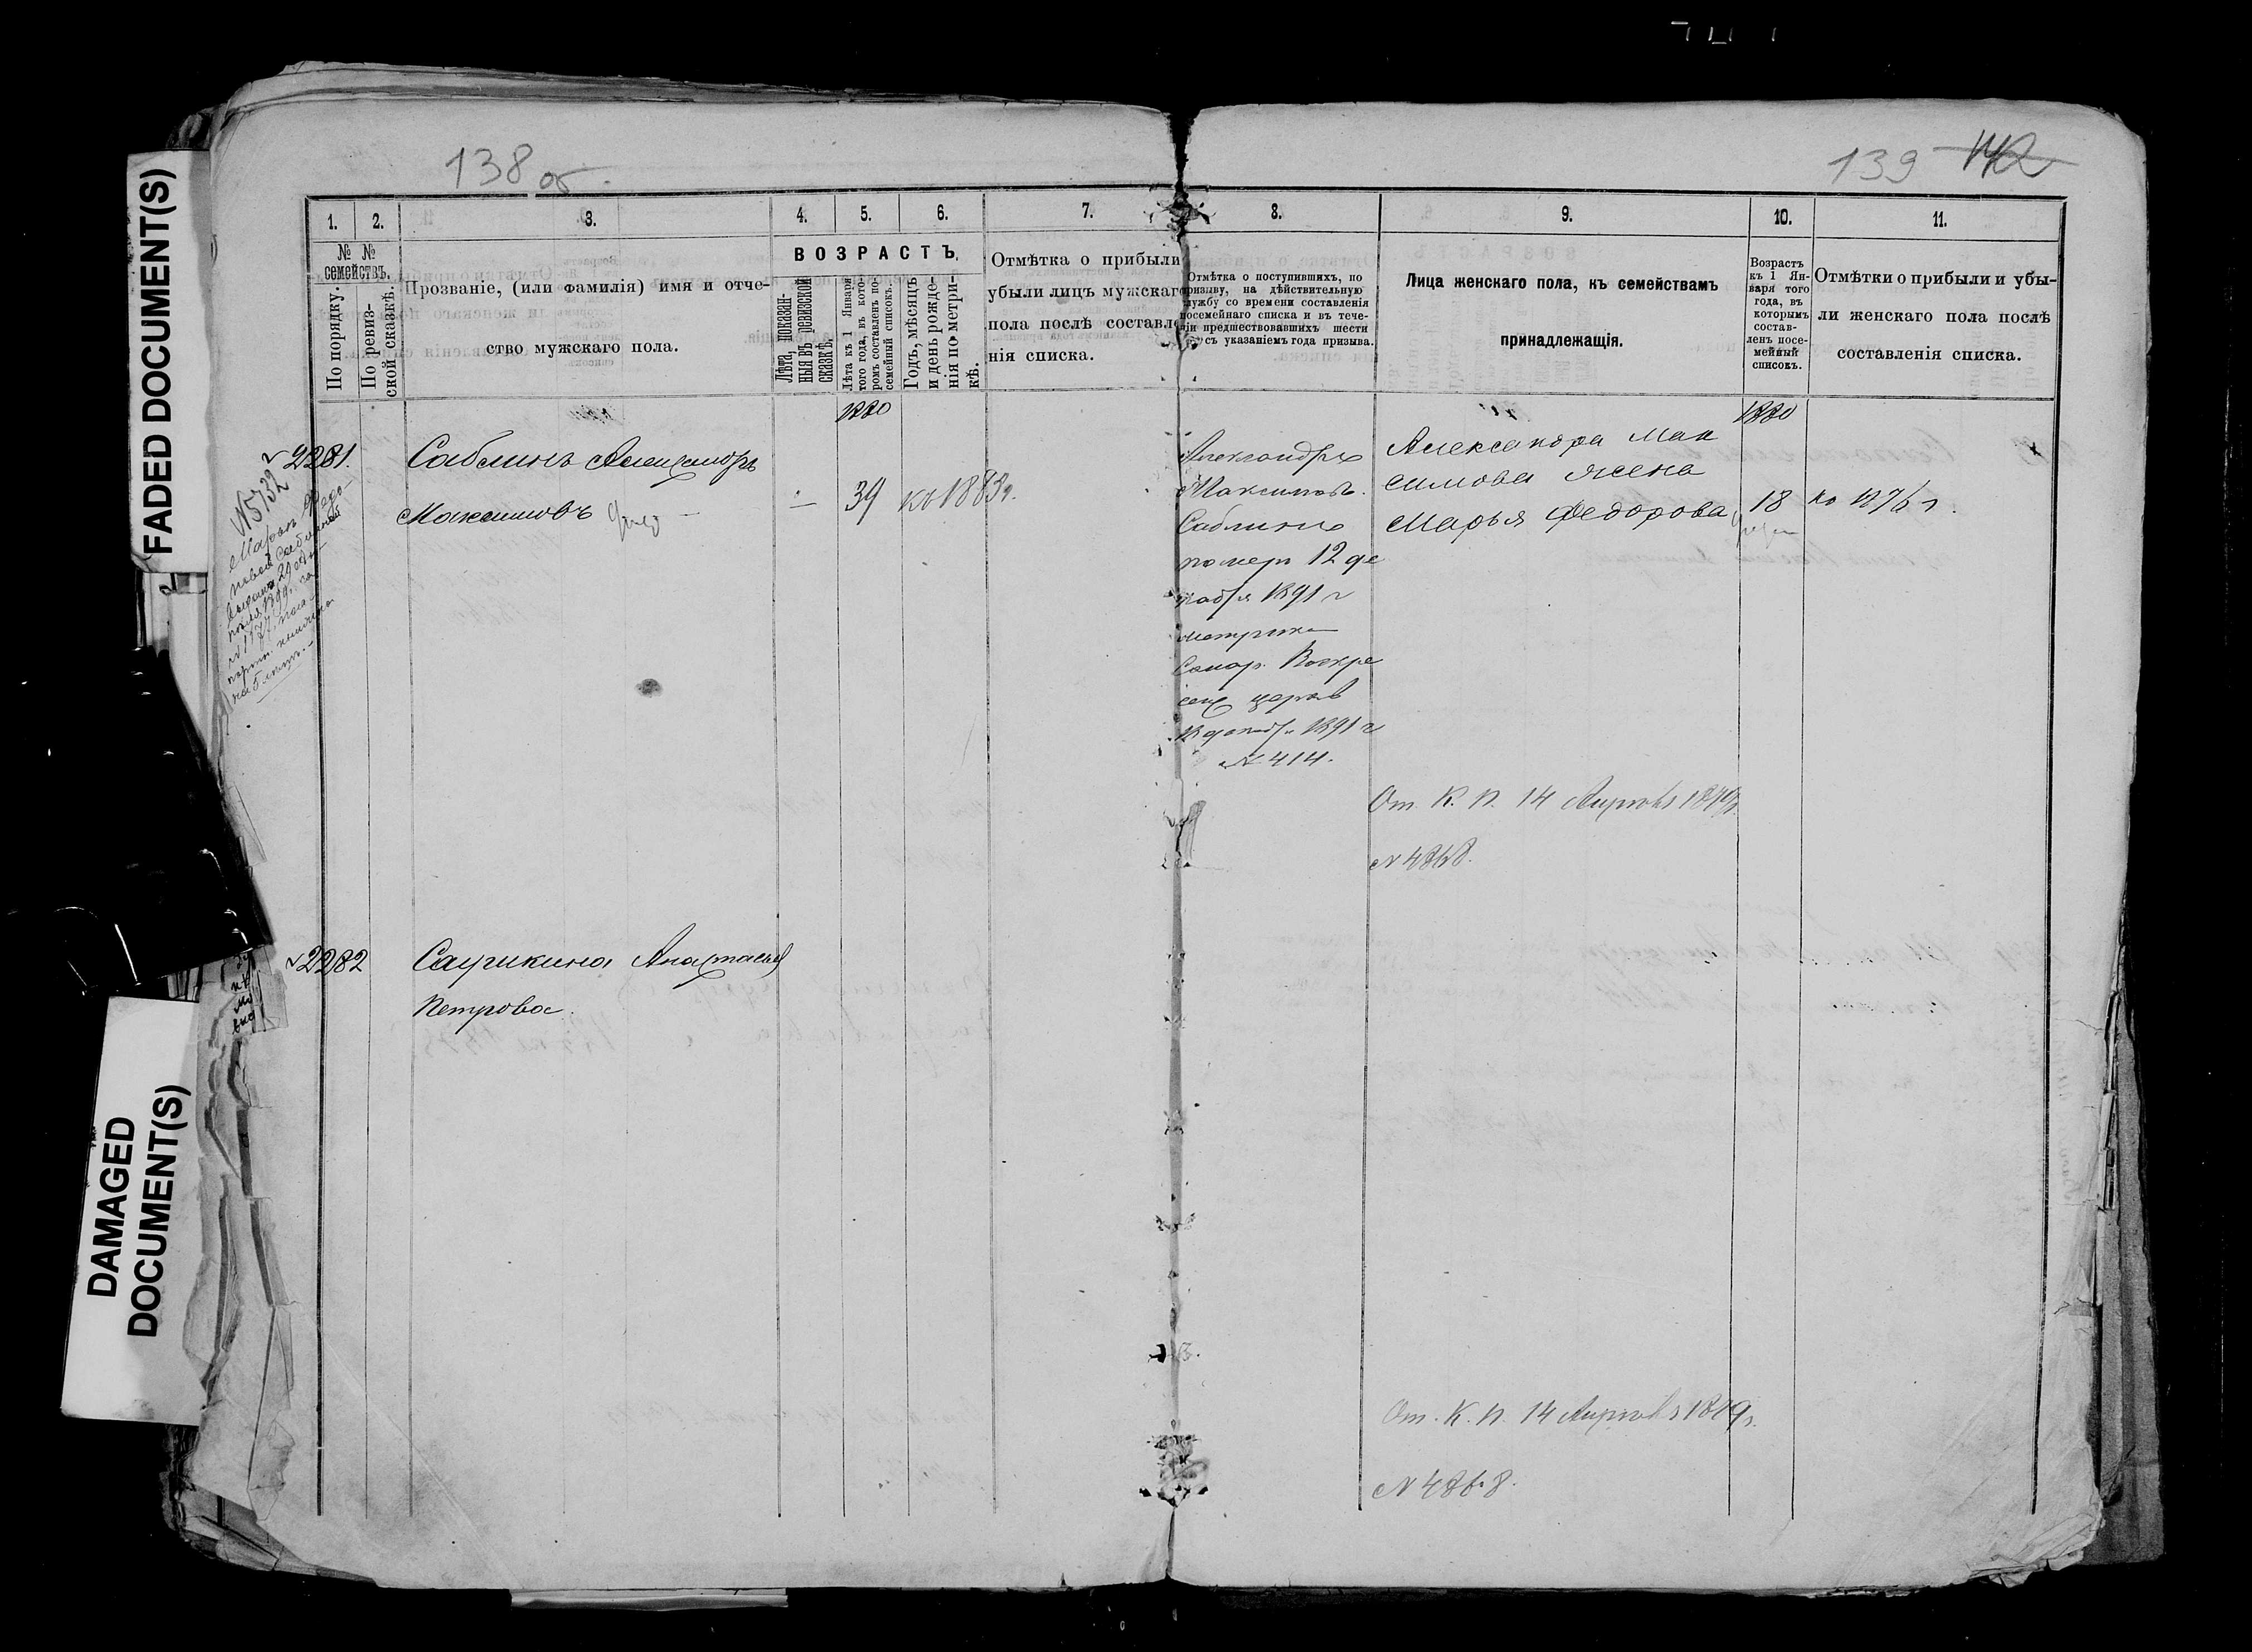 FADED DOCUMENT(S)
DAMAGED
DOCUMENT(S)
138 об.
139 142
1. 2. 3. 4. 5. 6. 7. 8. 9. 10. 11.
№ №
семействъ.
По порядку.
По ревиз-
ской сказкѣ.
Прозваніе, (или фамилія) имя и отче-
ство мужскаго пола.
ВОЗРАСТЪ.
Лѣта, показан-
ныя въ ревизской
сказкѣ.
Лѣта къ 1 Января
того года, въ кото-
ромъ составленъ по-
семейный списокъ.
Годъ, мѣсяцъ
и день рожде-
нія по метри-
кѣ.
Отмѣтка о прибыли
убыли лицъ мужскаго
пола послѣ составле
нія списка.
Отмѣтка о поступившихъ, по
призыву, на дѣйствительную
службу со времени составленія
посемейнаго списка и въ тече-
ніи предшествовавшихъ шести
съ указаніемъ года призыва.
Лица женскаго пола, къ семействамъ
принадлежащія.
Возрастъ
къ 1 Ян-
варя того
года, въ
которымъ
состав-
ленъ посе-
мейный
списокъ.
Отмѣтки о прибыли и убы-
ли женскаго пола послѣ
составленія списка.
1880
1880
2281.
Саблинъ Александръ
Максимовъ
—
39
къ 1883 г.
№ 5732
Александръ
Максимовъ
Саблинъ
померъ 12 де
кабря 1891 г
метрика
Самар. Воскре
сен церкв
декабр 1891 г
№ 414.
Александра Мак
симова жена
Марья Федорова
18
по 1876 г.
От. К. П. 14 Апрѣля 1879 г.
№ 4868.
2282
Саушкина Анастасья
Петрова.
От. К. П. 14 Апрѣля 1879 г.
№ 4868.